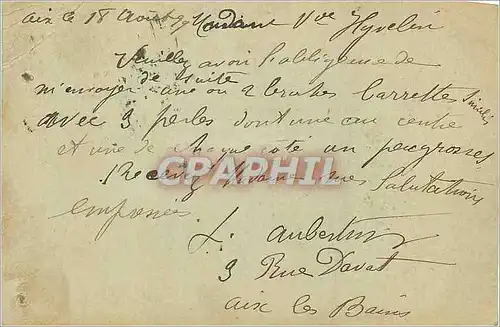 aix le 18 Aout Madame Vve Hyvelin
Veuillez avoir l'obligence de
m'envoyer de suite une ou 2 brutes barrettes Similis
avec 3 perles dont une au centre
et une de chaque coté un peu grosses
Recevez Madame mes Salutations
empressées
CPARPHIL
J. Aubertin
3 Rue Davat
aix les Bains